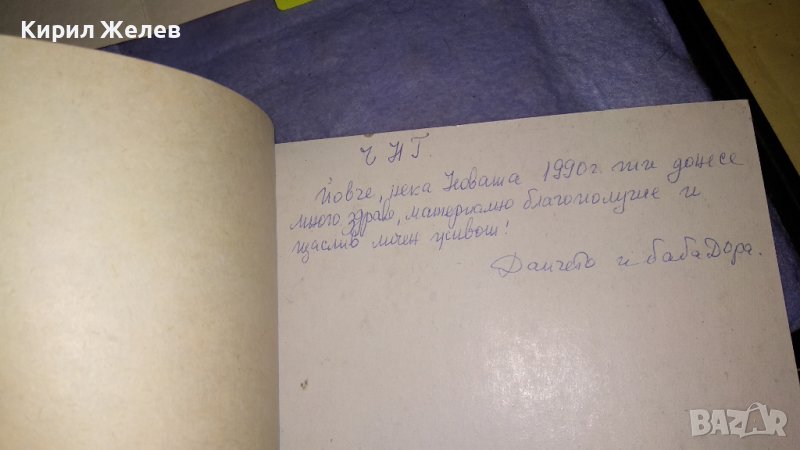 Кирил Желев
Ч Н Г.
Йовче, нека Новата 1990г. ти донесе
много здраве, материално благополучие и
щаслив личен живот!
Данчето и баба Дора.
BAZAR